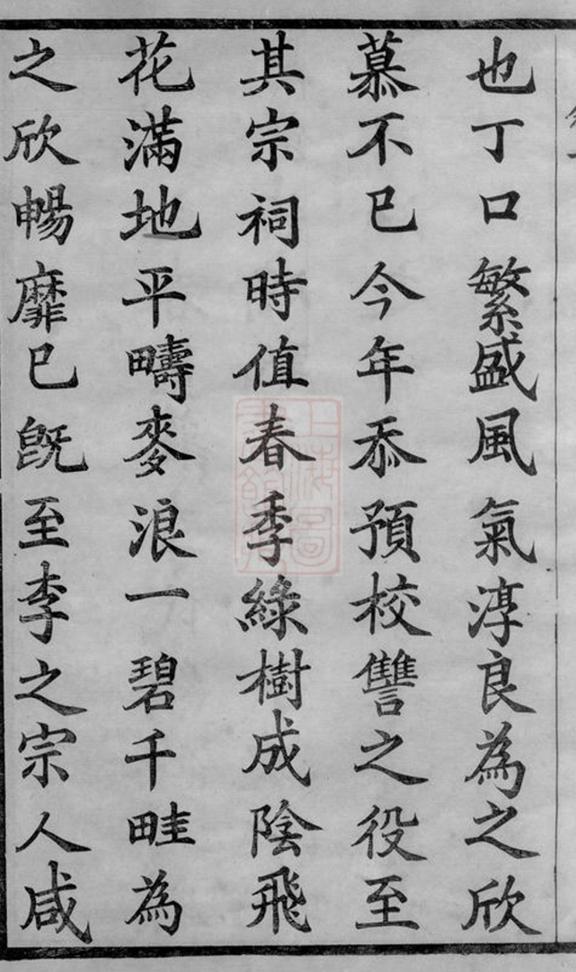 也丁口繁盛風氣淳良為之欣
慕不已今年忝預校讐之役至
其宗祠時值春季綠樹成陰飛
花滿地平疇麥浪一碧千畦為
之欣暢靡已既至李之宗人咸